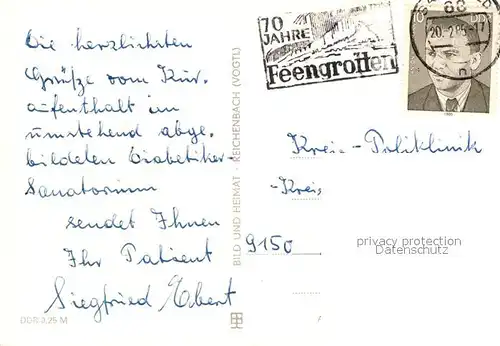 Die herzlichsten
Grüße vom Kur-
aufenthalt im
umstehend abge-
bildeten Diabetiker-
Sanatorium
sendet Ihnen
Ihr Patient
Siegfried Ebert
DDR 0,25 M
BILD UND HEIMAT · REICHENBACH (VOGTL)
70
JAHRE
Feengrotten
68
20.-2.85-17
n
10
DDR
Kreis-Poliklinik
-Kreis
9150
privacy protection
Datenschutz